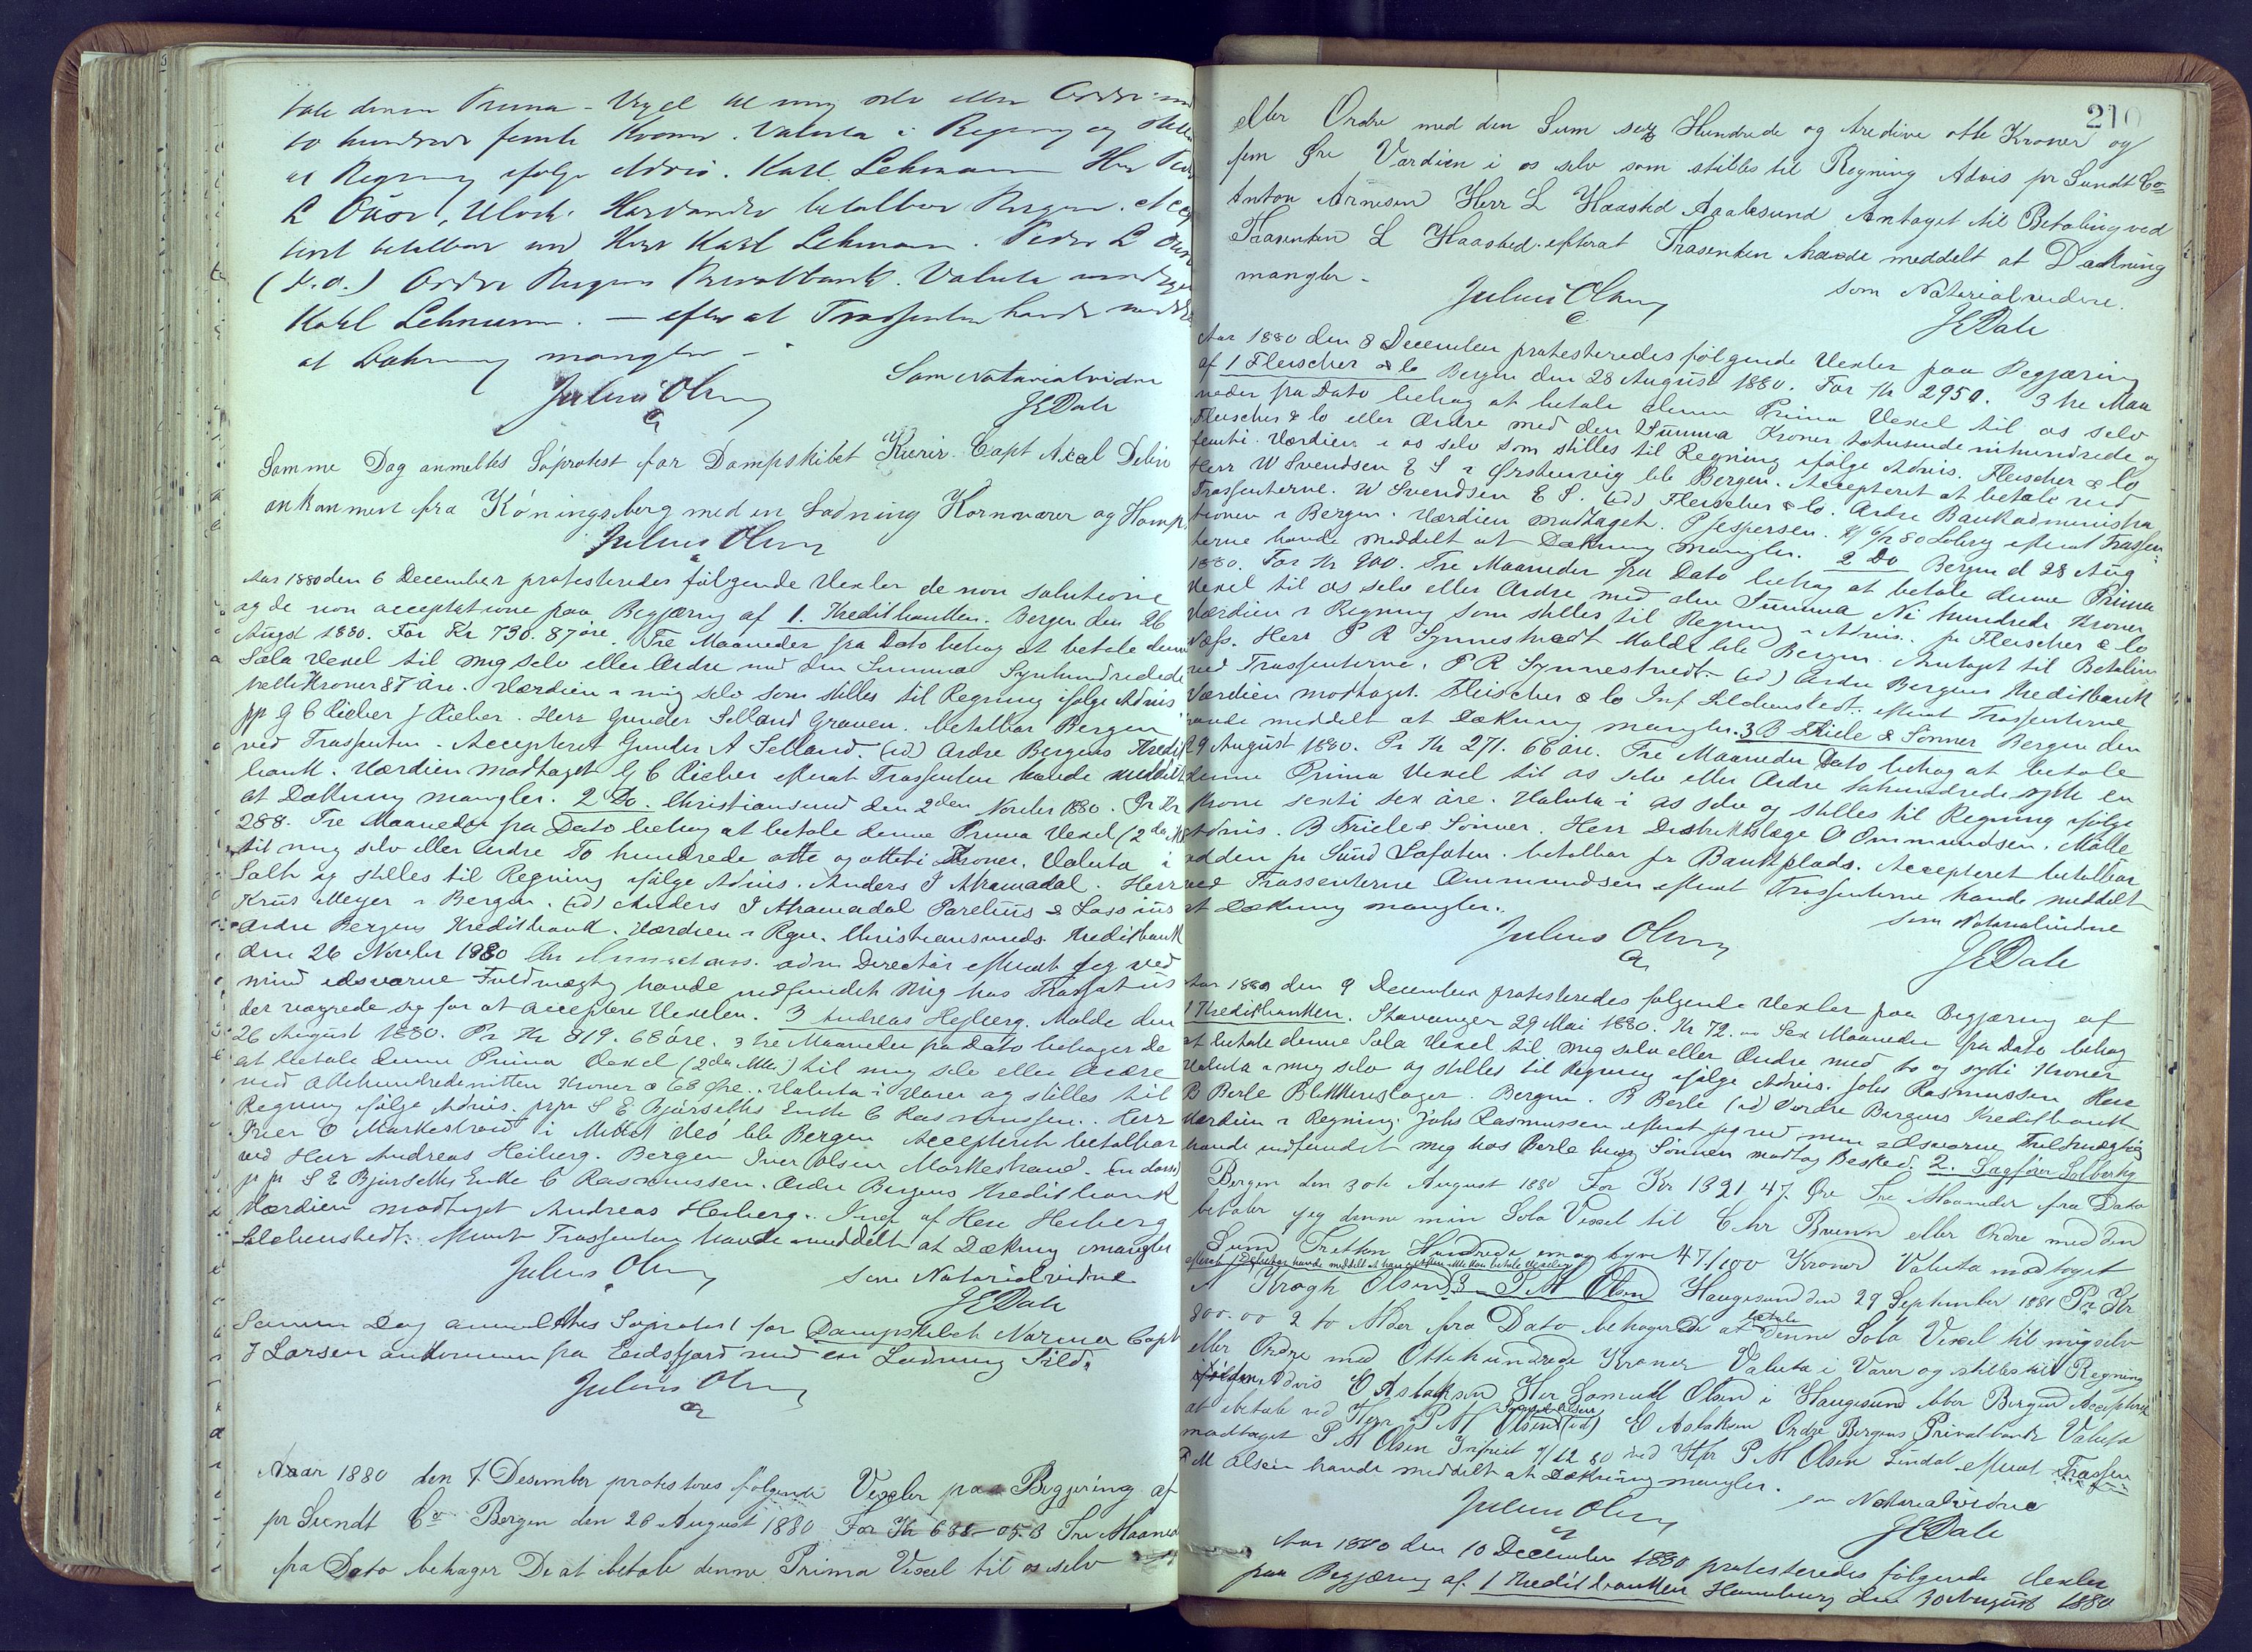 tale denne Prima-Vexel til mig selv eller Ordre med
to hundrede femti Kroner. Valuta i Regning og stilles
til Regning ifølge Advis. Karl Lehmann Herr Peder
L betalbar Bergen. Accep
teret betalbar ved Herr Karl Lehmann. Peder L
(s.a.) Ordre Bergens Privatbank. Valuta
Karl Lehmann. — efter at Trassenten havde meddelt
at Dækning mangler —
Som Notarialvidne
Julius Olsen
JEDale
Samme Dag anmeldtes Søprotest for Dampskibet Kurir Capt Axel
ankommen fra Köningsberg med en Ladning Kornvarer og Hamp.
Julius Olsen
Aar 1880 den 6 December protesteredes følgende Vexler de non solutione
og de non acceptatione paa Begjæring af 1. Kreditbanken. Bergen den 26
Augst 1880. For Kr 730. 87 øre. Tre Maaneder fra Dato behag at betale denne
Sola Vexel til mig selv eller Ordre med den Summa Syvhundrede
tretti Kroner 87 Øre. Værdien i mig selv som stilles til Regning ifølge Advis
pp G C Rieber J Rieber. Herr Gunder Selland Graven. betalbar Bergen
ved Trassenten. Accepteret Gunder A Selland. (id) Ordre Bergens Kredit
bank. Værdien modtaget G C Rieber efterat Trassenten havde meddelt
at Dækning mangler. 2 Do. Christiansund den 2den Novber 1880. Pr Kr
288. Tre Maaneder fra Dato behag at betale denne Prima Vexel (2den
til mig selv eller Ordre To hundrede otte og otteti Kroner. Valuta i
Salt og stilles til Regning ifølge Advis. Anders J Aramadal. Herr
Krüs Meyer i Bergen. (id) Anders J Aramadal Parelius & Lossius
Ordre Bergens Kreditbank. Værdien i Regn. Christiansunds Kreditbank
den 26 Novbr 1880 adm Director efterat jeg ved
mind edsvorne Fuldmægtig havde indfundet mig hos Trassatus
der vægrede sig for at acceptere Vexelen. 3 Andreas Heiberg. Molde den
26 August 1880. Pr Kr 819. 68 öre. 3 tre Maaneder fra dato behager De
at betale denne Prima Vexel (2da Ikke) til mig selv eller Ordre
med Ottehundredenitten Kroner & 68 Øre. Valuta i Varer og stilles til
Regning ifølge Advis. prpr S E Bjørseths Enke C Rasmussen. Herr
Iver O Markestrand i Mittet Veø bbr Bergen Accepteret betalbar
ved Herr Andreas Heiberg. Bergen Iver Olsen Markestrand. En dosso
pr pr S E Bjørseths Enke C Rasmussen. Ordre Bergens Kreditbank
Værdien modtaget Andreas Heiberg. Inf af Herr Heiberg
Lilchenstedt. efterat Trassenten havde meddelt at Dækning mangler
Julius Olsen
som Notarialvidne
JEDale
Samme Dag anmeldtes Søprotest for Dampskibet Norma Capt
J Larsen ankommen fra Eidsfjord med en Ladning Sild.
Julius Olsen
Aaar 1880 den 7 Desember protesteres følgende Vexler paa Begjæring af
pr Sundt Co Bergen den 26 August 1880 For Kr 638-05. 3 Tre Maaned
fra Dato behager De at betale denne Prima Vexel til os selv
210
eller Ordre med den Sum sex Hundrede og tredive otte Kroner og
fem Øre Værdien i os selv som stilles til Regning Advis pr Sundt Co
Anton Arnesen Herr L Haasted Aalesund Antaget til Betaling ved
Trasenten L Haasted. efterat Trasenten havde meddelt at Dækning
mangler.
som Notarialvidne.
Julius Olsen
JEDale
Aar 1880 den 8 December protesteredes følgende Vexler paa Begjæring
af 1 Fleischer & Co Bergen den 28 August 1880. For Kr 2950. 3 tre Maa
neder fra Dato behag at betale denne Prima Vexel til os selv
Fleischer & Co eller Ordre med den Summa Kroner totusinde nihundrede og
femti. Værdien i os selv som stilles til Regning ifølge Advis. Fleischer & Co
Herr W Svendsen E S i Ørstenvig bbr Bergen. Accepteret at betale ved
Trassenterne. W Svendsen E S. (id) Fleischer & Co. Ordre Bankadministra
tionen i Bergen. Værdien modtaget. P Jespersen. 6/12 80 efterat Trassen
terne havde meddelt at Dækning mangler. 2 Do Bergen d 28 Aug
1880. For Kr 900. Tre Maaneder fra Dato behag at betale denne Prima
Vexel til os selv eller Ordre med den Summa Ni hundrede Kroner
Værdien i Regning som stilles til Regning i Advis. pr Fleischer & Co
Herr P R Synnestvedt Molde bbr Bergen. Antaget til Betaling
ved Trassenterne. P R Synnestvedt. (id) Ordre Bergens Kreditbank
Værdien modtaget. Fleischer & Co Inf Lilchenstedt. efterat Trassenterne
havde meddelt at Dækning mangler. 3 B Friele & Sönner Bergen den
29 August 1880. Pr Kr 271. 66 øre. Tre Maaneder Dato behag at betale
denne Prima Vexel til os selv eller Ordre tohundrede sytti en
Krone sexti sex øre. Valuta i os selv og stilles til Regning ifølge
Advis. B Friele & Sönner. Herr Distriktslæge O Ommundsen. Molle
odden pr Sund Lofoten. betalbar pr Bankplads. Accepteret betalbar
ved Trassenterne Ommundsen efterat Trassenterne havde meddelt
at Dækning mangler.
som Notarialvidne
Julius Olsen
JEDale
Aar 1880 den 9 December protesteredes følgende Vexler paa Begjæring af
1 Kreditbanken. Stavanger 29 Mai 1880. Kr 72. Sex Maaneder fra Dato behag
at betale denne Sola Vexel til mig selv eller Ordre med to og sytti Kroner
Valuta i mig selv og stilles til Regning ifølge Advis. Johs Rasmussen Herr
B Berle Blikkenslager. Bergen. B Berle (id) Ordre Bergens Kreditbank
Værdien i Regning. Johs Rasmussen efterat jeg ved min Edsvorne Fuldmægtig
havde indfundet mig hos Berle hvor Sönnen modtog Besked. 2. Sagfører Salberg
Bergen den 30te August 1880 For Kr 1321. 47. Øre Tre Maaneder fra Dato
betaler jeg denne min Sola Vexel til Chr Brunn eller Ordre med den
Sum Tretten Hundrede en og tyve 47/100 Kroner Valuta modtaget
efterat Debitor havde meddelt at han ikke kan betale Vexelen
A Krogh Olsen) 3 P M Olsen Haugesund den 29 September 1880 Pr Kr
800.00 2 to Mdr fra Dato behager De at betale denne Sola Vexel til mig selv
eller Ordre med Ottehundrede Kroner Valuta i Varer og stilles til Regning
ifølge Advis O Aslaksen Herr Samuel Olsen i Haugesund bbr Bergen Accepteret
at betale ved Herr P M Olsen (id) O Aslaksen Ordre Bergens Privatbank Valuta
modtaget P M Olsen 9/12 80 ved Herr P M Olsen Lindal efterat Trassen
P M Olsen havde meddelt at Dækning mangler.
som Notarialvidne
Julius Olsen
JEDale
Aar 1880 den 10 December 1880 protesteredes følgende Vexler
paa Begjæring af 1 Kreditbanken Hamburg den 30 August 1880